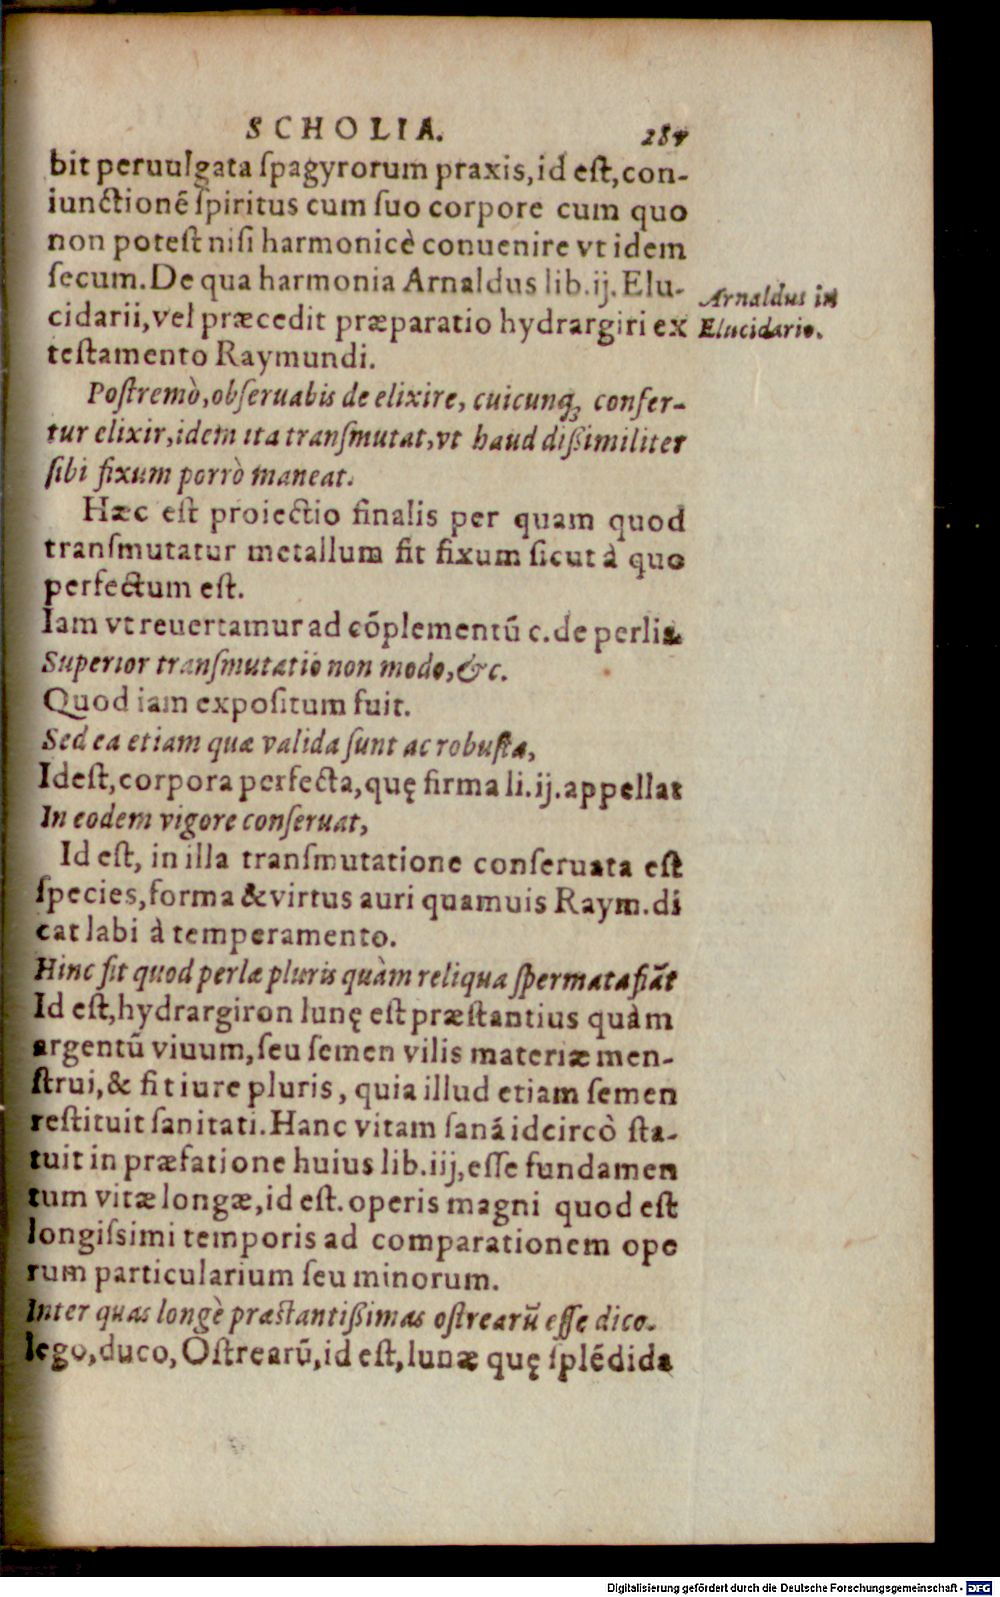 SCHOLIA. 287
bit peruulgata ſpagyrorum praxis, id eſt, con-
iunctionē ſpiritus cum ſuo corpore cum quo
non poteſt niſi harmonicè conuenire vt idem
ſecum. De qua harmonia Arnaldus lib. ij. Elu-
cidarii, vel præcedit præparatio hydrargiri ex
teſtamento Raymundi.
Arnaldus in
Elucidario.
Poſtremò, obſeruabis de elixire, cuicunq; confer-
tur elixir, idem ita tranſmutat, vt haud dißimiliter
ſibi fixum porrò maneat.
Hæc eſt proiectio finalis per quam quod
tranſmutatur metallum fit fixum ſicut à quo
perfectum eſt.
Iam vt reuertamur ad cōplementū c. de perlis
Superior tranſmutatio non modo, &c.
Quod iam expoſitum fuit.
Sed ea etiam quæ valida ſunt ac robuſta,
Id eſt, corpora perfecta, quę firma li. ij. appellat
In eodem vigore conſeruat,
Id eſt, in illa tranſmutatione conſeruata eſt
ſpecies, forma & virtus auri quamuis Raym. di
cat labi à temperamento.
Hinc fit quod perlæ pluris quàm reliqua ſpermata fiāt
Id eſt, hydrargiron lunę eſt præſtantius quàm
argentū viuum, ſeu ſemen vilis materiæ men-
ſtrui, & fit iure pluris, quia illud etiam ſemen
reſtituit ſanitati. Hanc vitam ſanā idcircò ſta-
tuit in præfatione huius lib. iij, eſſe fundamen
tum vitæ longæ, id eſt. operis magni quod eſt
longiſsimi temporis ad comparationem ope
rum particularium ſeu minorum.
Inter quas longè præſtantißimas oſtrearū eſſe dico.
lego, duco, Oſtrearū, id eſt, lunæ quę ſplēdida
Digitalisierung gefördert durch die Deutsche Forschungsgemeinschaft - DFG